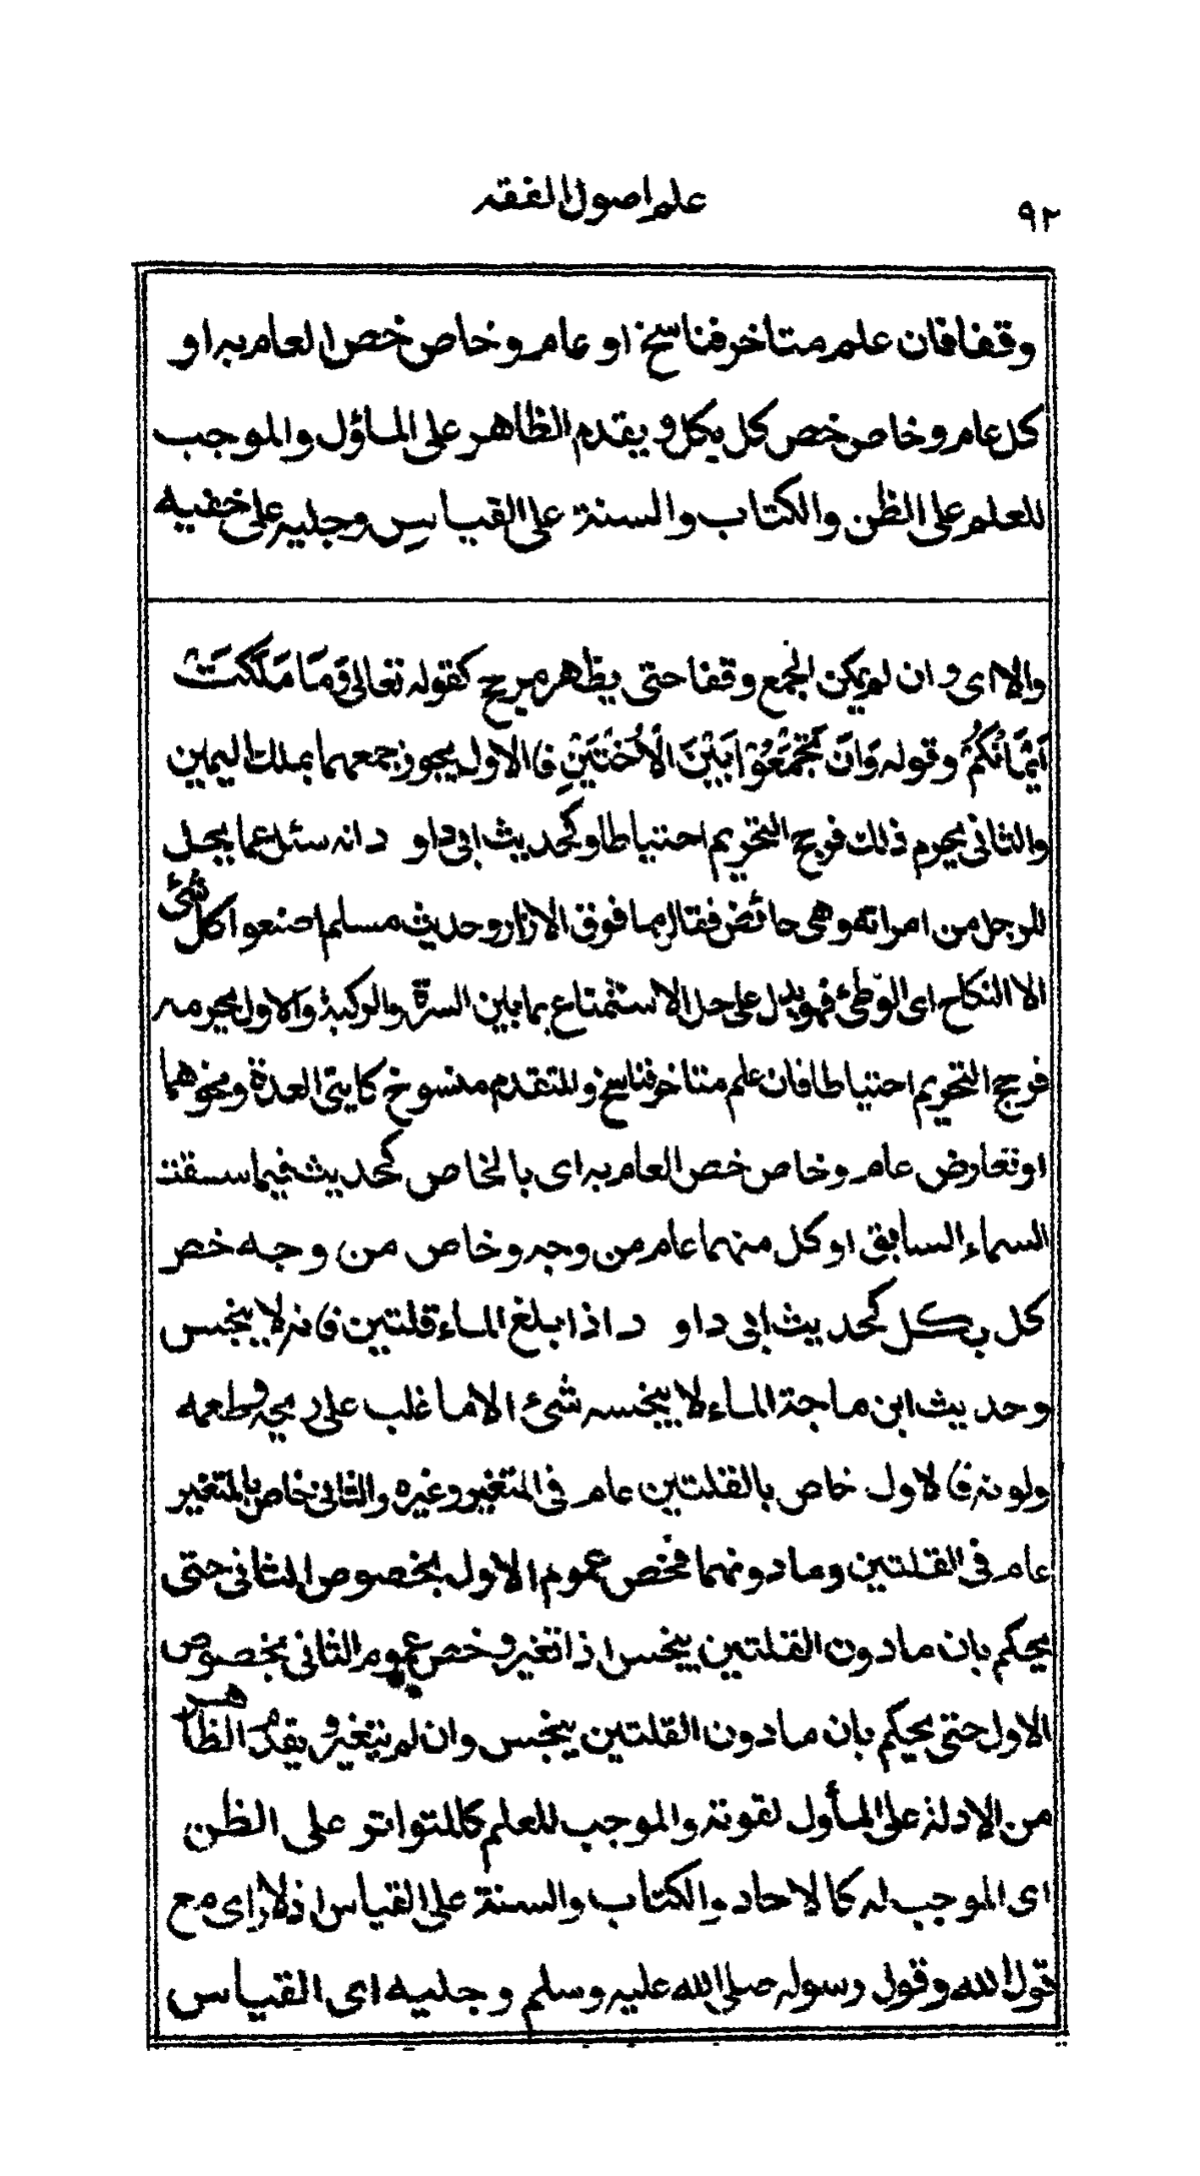 ٩٢
علم اصول الفقه
وقفا فان علم متاخر فناسخ او عام و خاص خص العام به او
كل عام و خاص خص كل بكل و يقدم الظاهر على الماؤل والموجب
للعلم على الظن والكتاب والسنة على القياس وجليه على خفيه
والا اى و ان لم يكن الجمع وقفا حتى يظهر مرجح كقوله تعالى وَمَا مَلَكَتْ
اَيْمَانُكُمْ وقوله وَاَنْ تَجْمَعُوْا بَيْنَ الْاُخْتَيْنِ فالاول يجوز جمعهما بملك اليمين
والثانى يحرم ذلك فرجح التحريم احتياطا وكحديث ابى داو د انه سئل عما يحل
للرجل من امراته وهى حائض فقال بما فوق الازار وحديث مسلم اصنعوا كل شئ
الا النكاح اى الوطئ فهو يدل على حل الاستمتاع بما بين السرة والركبة والاول يحرمه
فرجح التحريم احتياطا فان علم متاخر فناسخ والمتقدم منسوخ كايتى العدة ونحوهما
او تعارض عام و خاص خص العام به اى بالخاص كحديث فيما سقت
السماء السابق او كل منهما عام من وجه وخاص من وجه خص
كل بكل كحديث ابى داو د اذا بلغ الماء قلتين فانه لا ينجس
وحديث ابن ماجة الماء لا ينجسه شئ الا ما غلب على ريحه وطعمه
ولونه فالاول خاص بالقلتين عام فى المتغير وغيره والثانى خاص بالمتغير
عام فى القلتين وما دونهما فخص عموم الاول بخصوص الثانى حتى
يحكم بان ما دون القلتين ينجس اذا تغير وخص عموم الثانى بخصوص
الاول حتى يحكم بان ما دون القلتين ينجس وان لم يتغير و يقدم الظاهر
من الادلة على المأول لقوته والموجب للعلم كالمتواتر على الظن
اى الموجب له كالاحاد والكتاب والسنة على القياس اذ لا راى مع
قول الله وقول رسوله صلى الله عليه وسلم وجليه اى القياس